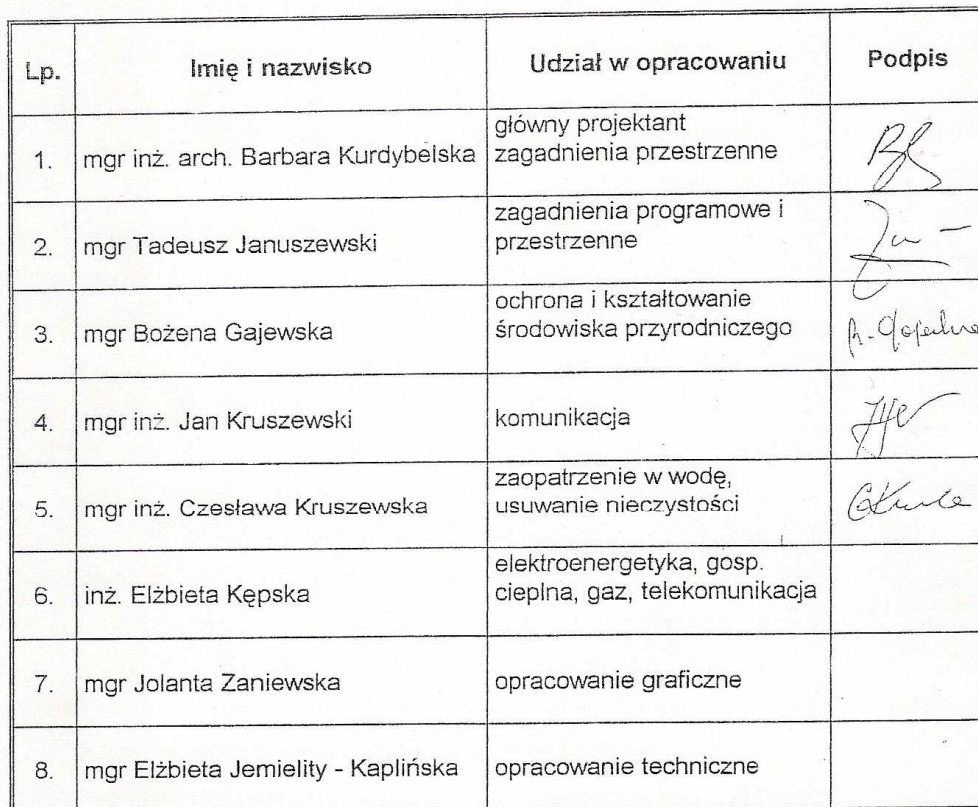 Lp. Imię i nazwisko Udział w opracowaniu Podpis
1. mgr inż. arch. Barbara Kurdybelska główny projektant
zagadnienia przestrzenne
2. mgr Tadeusz Januszewski zagadnienia programowe i
przestrzenne
3. mgr Bożena Gajewska ochrona i kształtowanie
środowiska przyrodniczego
4. mgr inż. Jan Kruszewski komunikacja
5. mgr inż. Czesława Kruszewska zaopatrzenie w wodę,
usuwanie nieczystości
6. inż. Elżbieta Kępska elektroenergetyka, gosp.
cieplna, gaz, telekomunikacja
7. mgr Jolanta Zaniewska opracowanie graficzne
8. mgr Elżbieta Jemielity - Kaplińska opracowanie techniczne